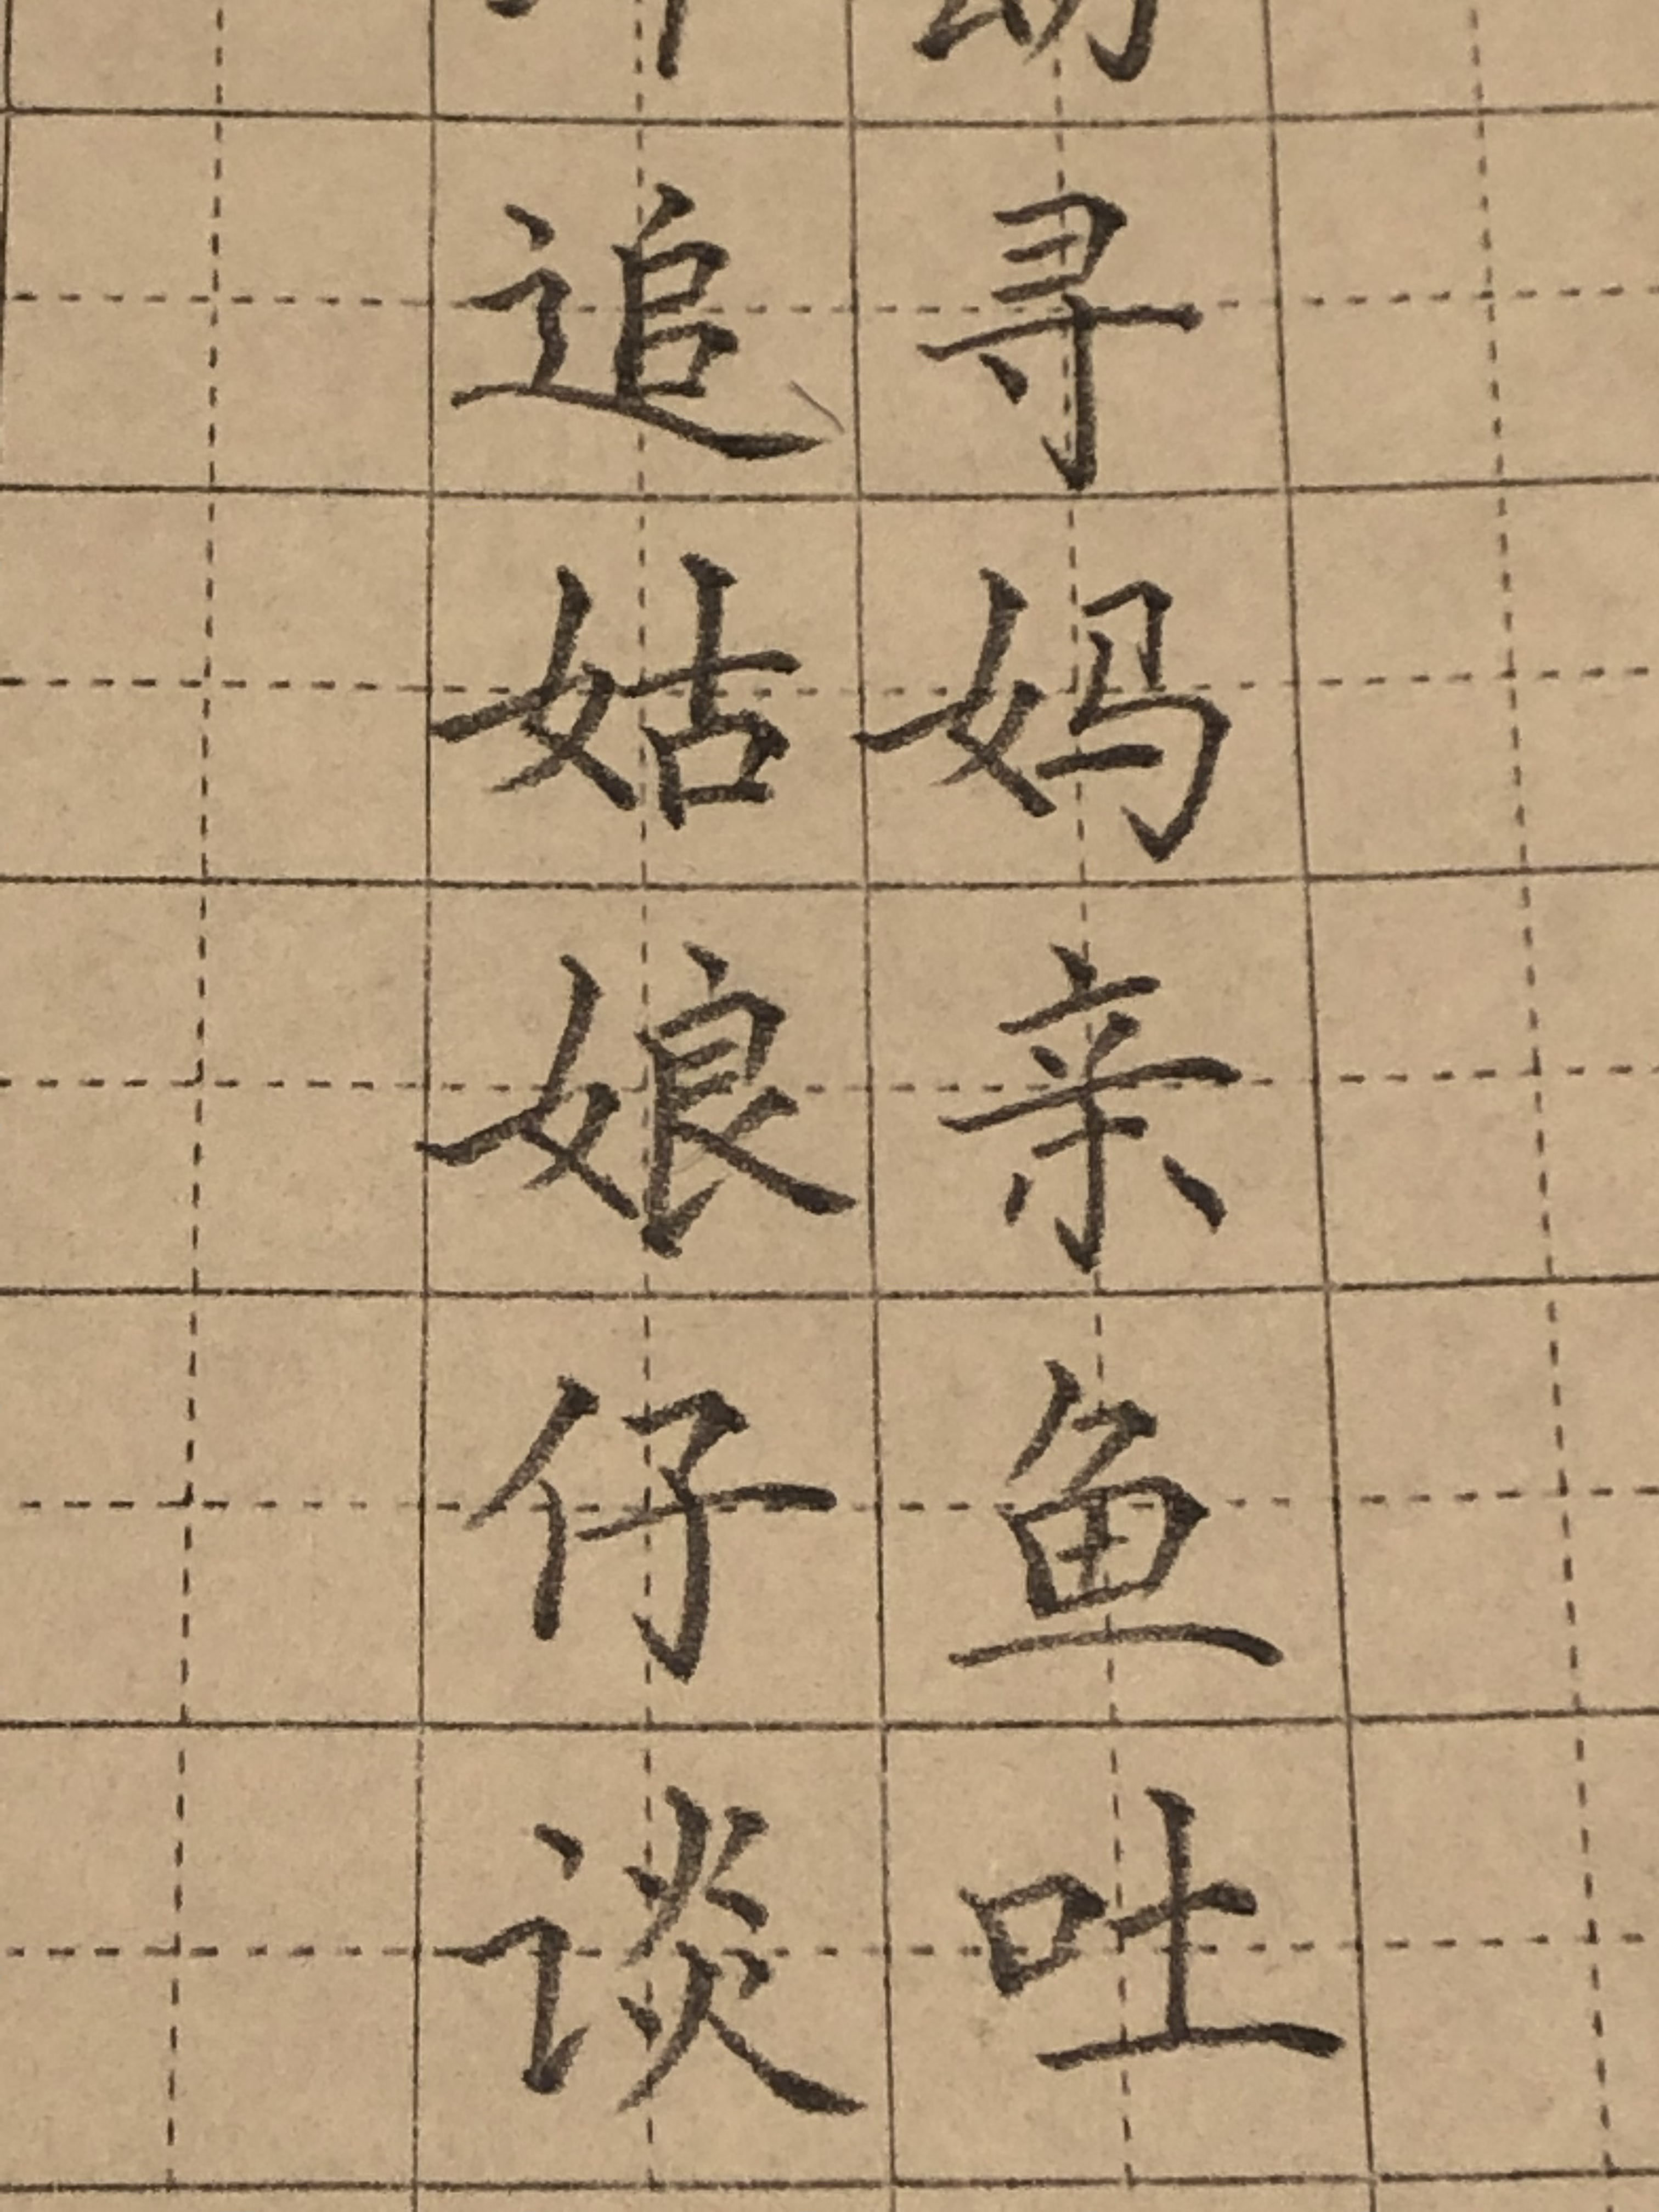 寻妈亲鱼吐
追姑娘仔谈